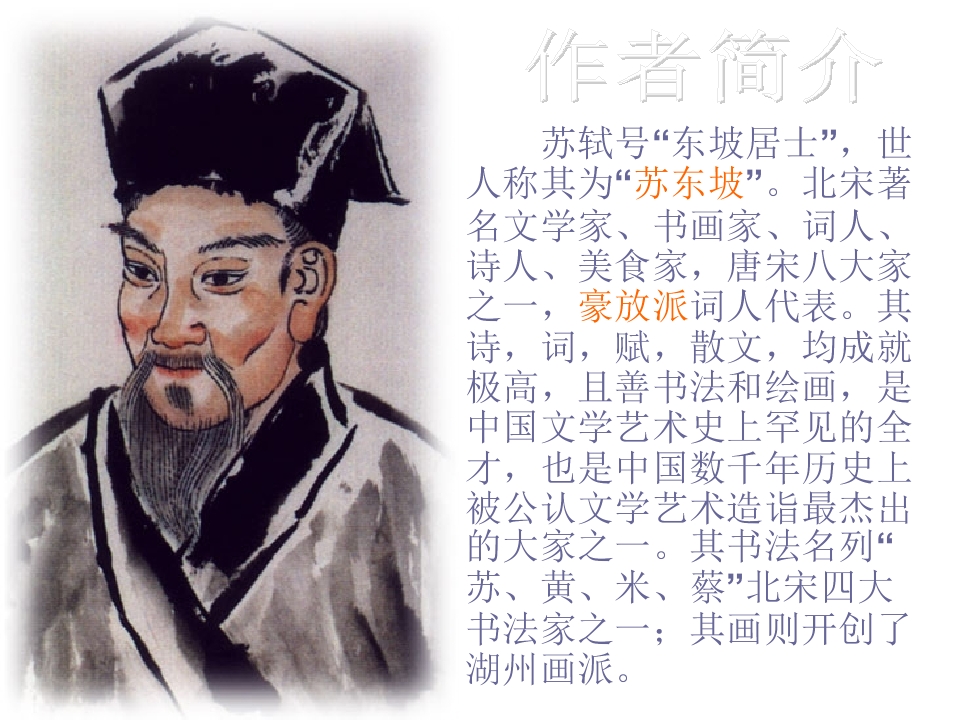 作者简介
苏轼号“东坡居士”，世
人称其为“苏东坡”。北宋著
名文学家、书画家、词人、
诗人、美食家，唐宋八大家
之一，豪放派词人代表。其
诗，词，赋，散文，均成就
极高，且善书法和绘画，是
中国文学艺术史上罕见的全
才，也是中国数千年历史上
被公认文学艺术造诣最杰出
的大家之一。其书法名列“
苏、黄、米、蔡”北宋四大
书法家之一；其画则开创了
湖州画派。